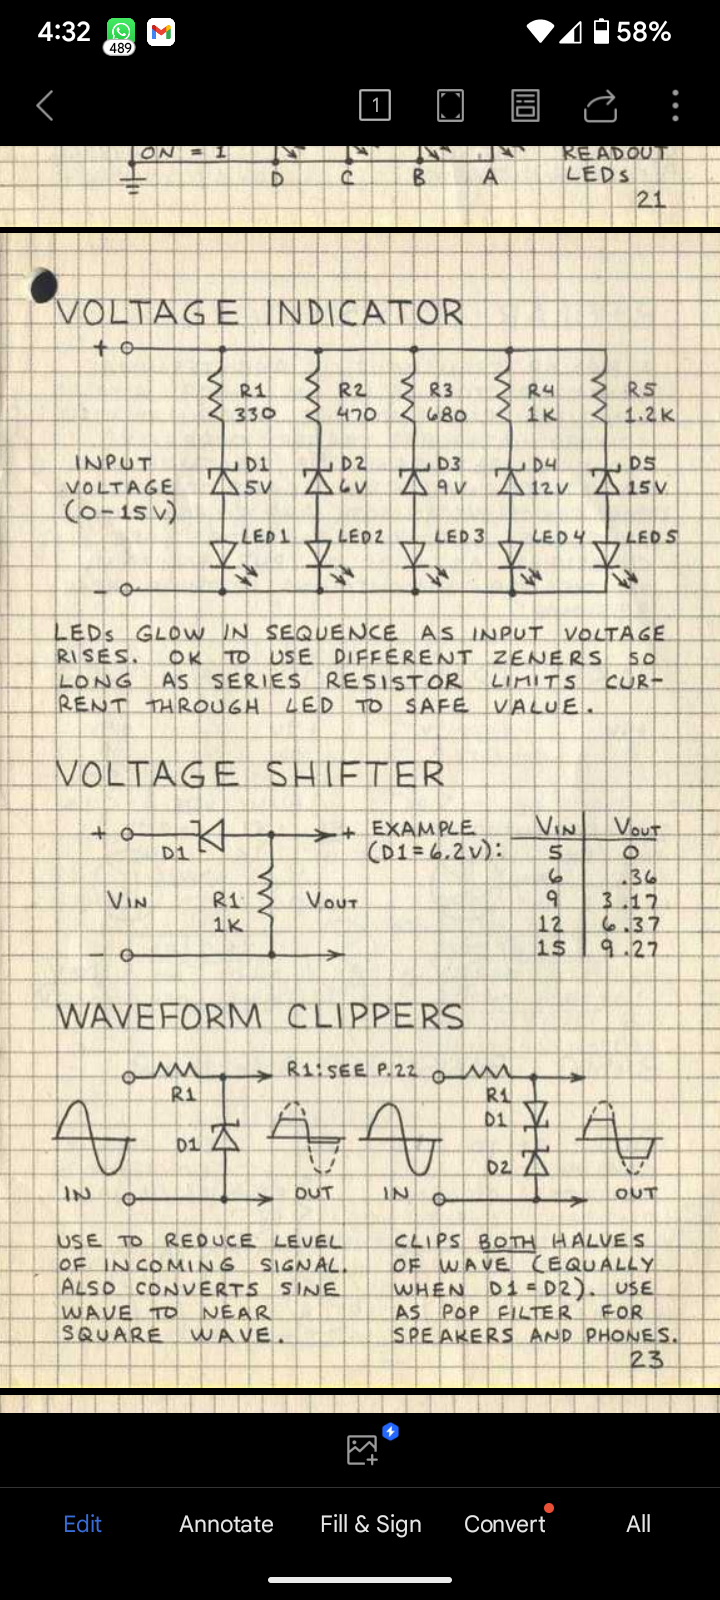 4:32
489
58%
1
ON = 1
READOUT
D C B A LEDs
21
VOLTAGE INDICATOR
+
R1 R2 R3 R4 R5
330 470 680 1K 1.2K
INPUT D1 D2 D3 D4 D5
VOLTAGE 5V 6V 9V 12V 15V
(0-15V)
LED1 LED2 LED3 LED4 LED5
-
LEDs GLOW IN SEQUENCE AS INPUT VOLTAGE
RISES. OK TO USE DIFFERENT ZENERS SO
LONG AS SERIES RESISTOR LIMITS CUR-
RENT THROUGH LED TO SAFE VALUE.
VOLTAGE SHIFTER
+ + EXAMPLE VIN VOUT
D1 (D1=6.2V): 5 0
6 .36
VIN R1 VOUT 9 3.17
1K 12 6.37
- 15 9.27
WAVEFORM CLIPPERS
R1: SEE P.22
R1 R1
D1
D1 D2
IN OUT IN OUT
USE TO REDUCE LEVEL
OF INCOMING SIGNAL.
ALSO CONVERTS SINE
WAVE TO NEAR
SQUARE WAVE.
CLIPS BOTH HALVES
OF WAVE (EQUALLY
WHEN D1=D2). USE
AS POP FILTER FOR
SPEAKERS AND PHONES.
23
Edit Annotate Fill & Sign Convert All